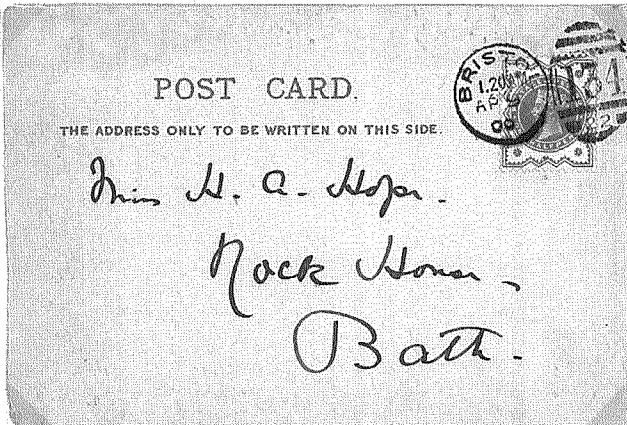 POST CARD.
THE ADDRESS ONLY TO BE WRITTEN ON THIS SIDE.
BRISTOL
AP
00
Miss H. A. Hope.
Rock House,
Bath.